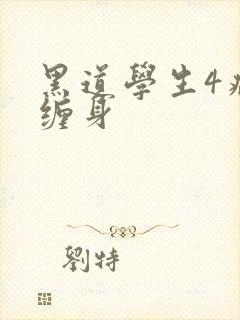 黑道學生4
缠身
劉特